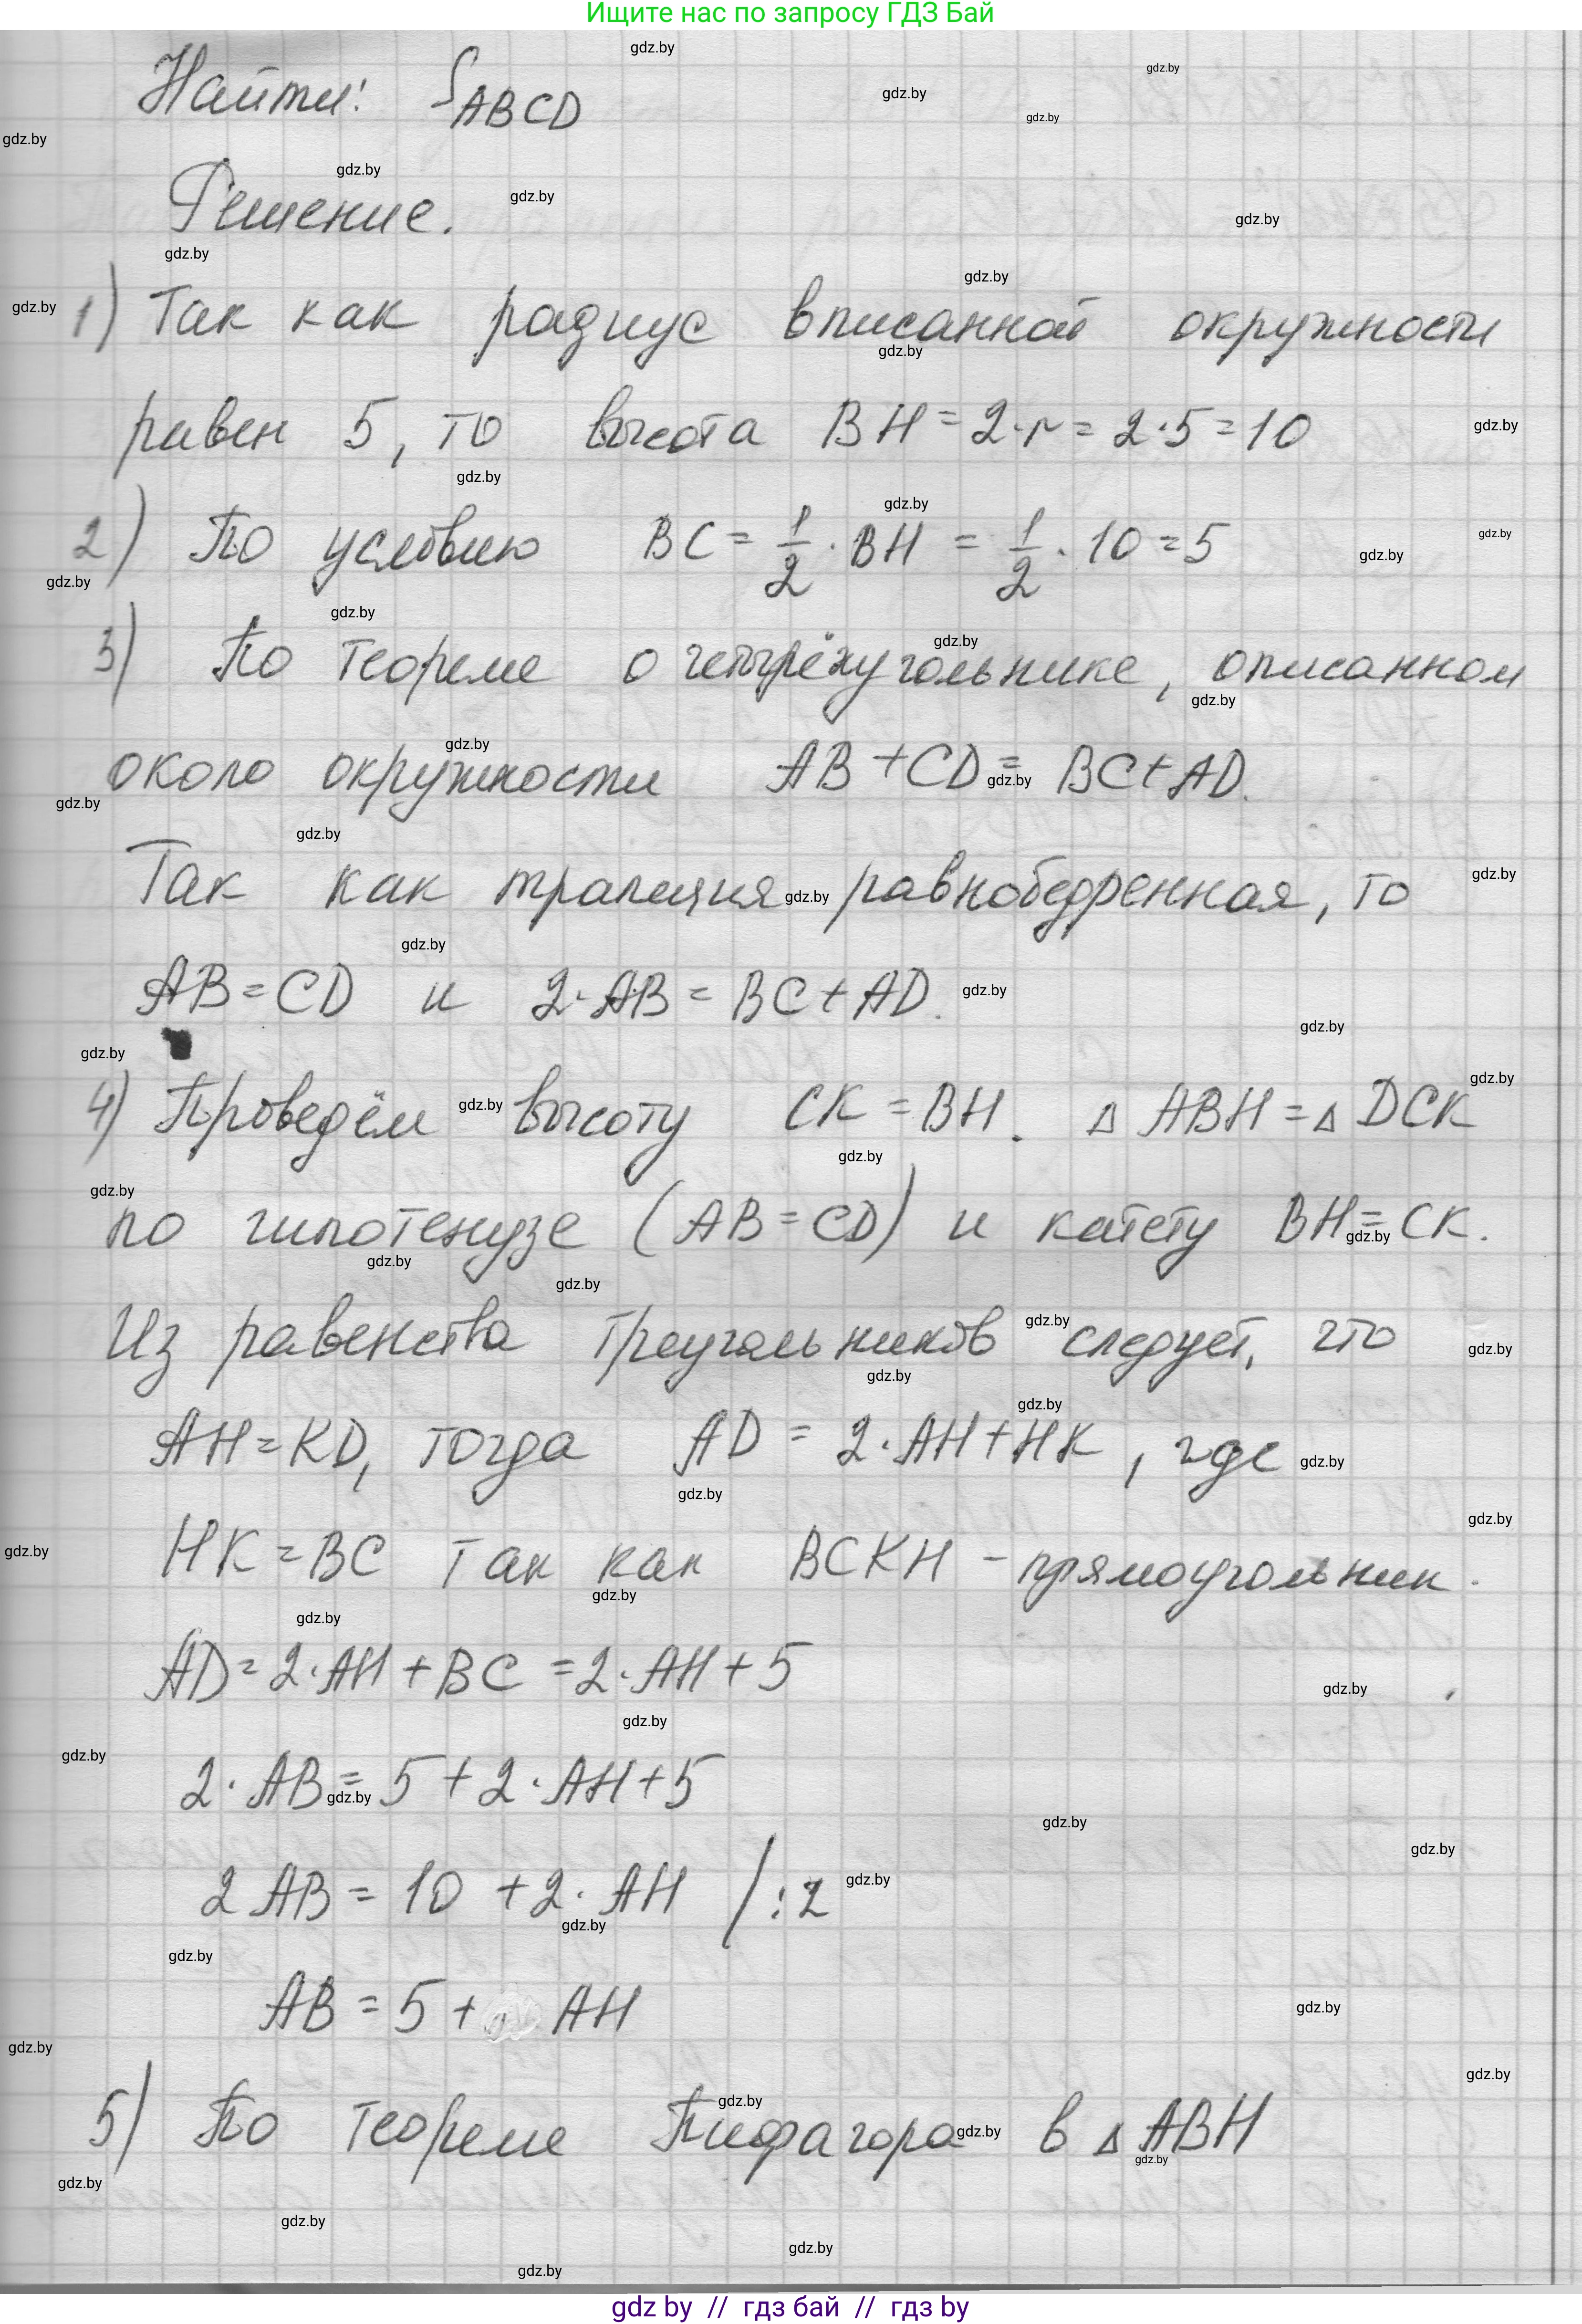 Ищите нас по запросу ГДЗ Бай
Найти: S_ABCD
Решение.
1) Так как радиус вписанной окружности
равен 5, то высота BH = 2·r = 2·5 = 10
2) По условию BC = 1/2 · BH = 1/2 · 10 = 5
3) По теореме о четырёхугольнике, описанном
около окружности AB + CD = BC + AD.
Так как трапеция равнобедренная, то
AB = CD и 2·AB = BC + AD.
4) Проведём высоту CK = BH. △ ABH = △ DCK
по гипотенузе (AB = CD) и катету BH = CK.
Из равенства треугольников следует, что
AH = KD, тогда AD = 2·AH + HK, где
HK = BC так как BCKH - прямоугольник.
AD = 2·AH + BC = 2·AH + 5
2·AB = 5 + 2·AH + 5
2 AB = 10 + 2·AH /:2
AB = 5 + AH
5) По теореме Пифагора в △ ABH
gdz by // гдз бай // гдз by